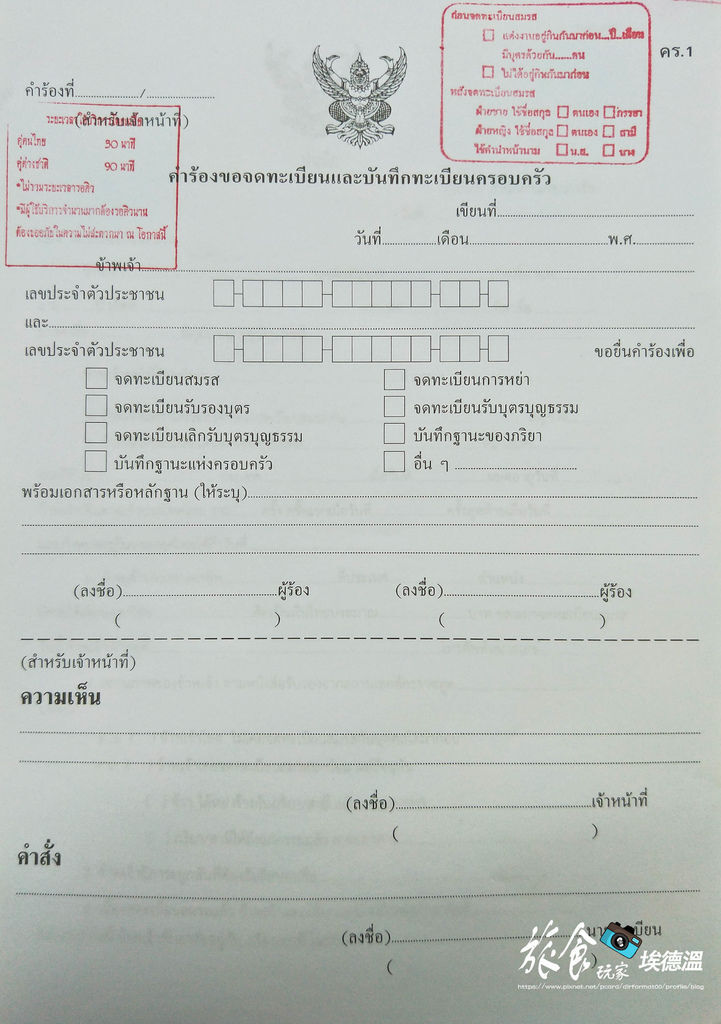 ก่อนจดทะเบียนสมรส
☐ แต่งงานอยู่กินกันมาก่อน...ปี...เดือน
มีบุตรด้วยกัน......คน
☐ ไม่ได้อยู่กินกันมาก่อน
หลังจดทะเบียนสมรส
ฝ่ายชาย ใช้ชื่อสกุล ☐ ตนเอง ☐ ภรรยา
ฝ่ายหญิง ใช้ชื่อสกุล ☐ ตนเอง ☐ สามี
ใช้คำนำหน้านาม ☐ น.ส. ☐ นาง
คร.1
คำร้องที่................/................
(สำหรับเจ้าหน้าที่)
คู่คนไทย 30 นาที
คู่ต่างชาติ 90 นาที
*ไม่รวมระยะเวลารอคิว
*มีผู้ใช้บริการจำนวนมากต้องรอคิวนาน
ต้องขออภัยในความไม่สะดวกมา ณ โอกาสนี้
คำร้องขอจดทะเบียนและบันทึกทะเบียนครอบครัว
เขียนที่................
วันที่................เดือน................พ.ศ................
ข้าพเจ้า................
เลขประจำตัวประชาชน
และ................
เลขประจำตัวประชาชน ขอยื่นคำร้องเพื่อ
☐ จดทะเบียนสมรส ☐ จดทะเบียนการหย่า
☐ จดทะเบียนรับรองบุตร ☐ จดทะเบียนรับบุตรบุญธรรม
☐ จดทะเบียนเลิกรับบุตรบุญธรรม ☐ บันทึกฐานะของภริยา
☐ บันทึกฐานะแห่งครอบครัว ☐ อื่น ๆ ................
พร้อมเอกสารหรือหลักฐาน (ให้ระบุ)................
(ลงชื่อ)................ผู้ร้อง (ลงชื่อ)................ผู้ร้อง
( ) ( )
(สำหรับเจ้าหน้าที่)
ความเห็น
(ลงชื่อ)................เจ้าหน้าที่
( )
คำสั่ง
(ลงชื่อ)................
( )
旅食玩家 埃德溫
https://www.pixnet.net/pcard/dirformat00/profile/blog